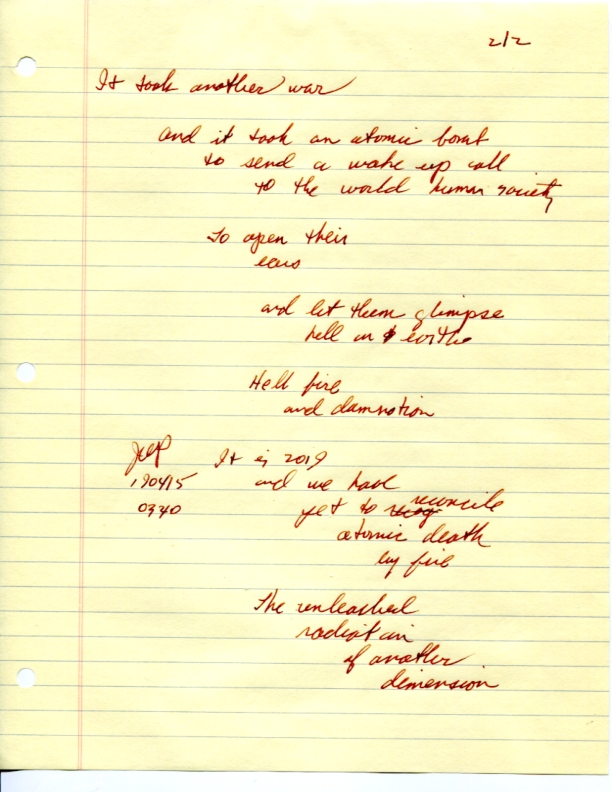 2/2
It took another war
and it took an atomic bomb
to send a wake up call
to the world human society
To open their
ears
and let them glimpse
hell on earth
Hell fire
and damnation
It is 2019
190415
and we have
0340
yet to reconcile
atomic death
by fire
The unleashed
radiation
of another
dimension